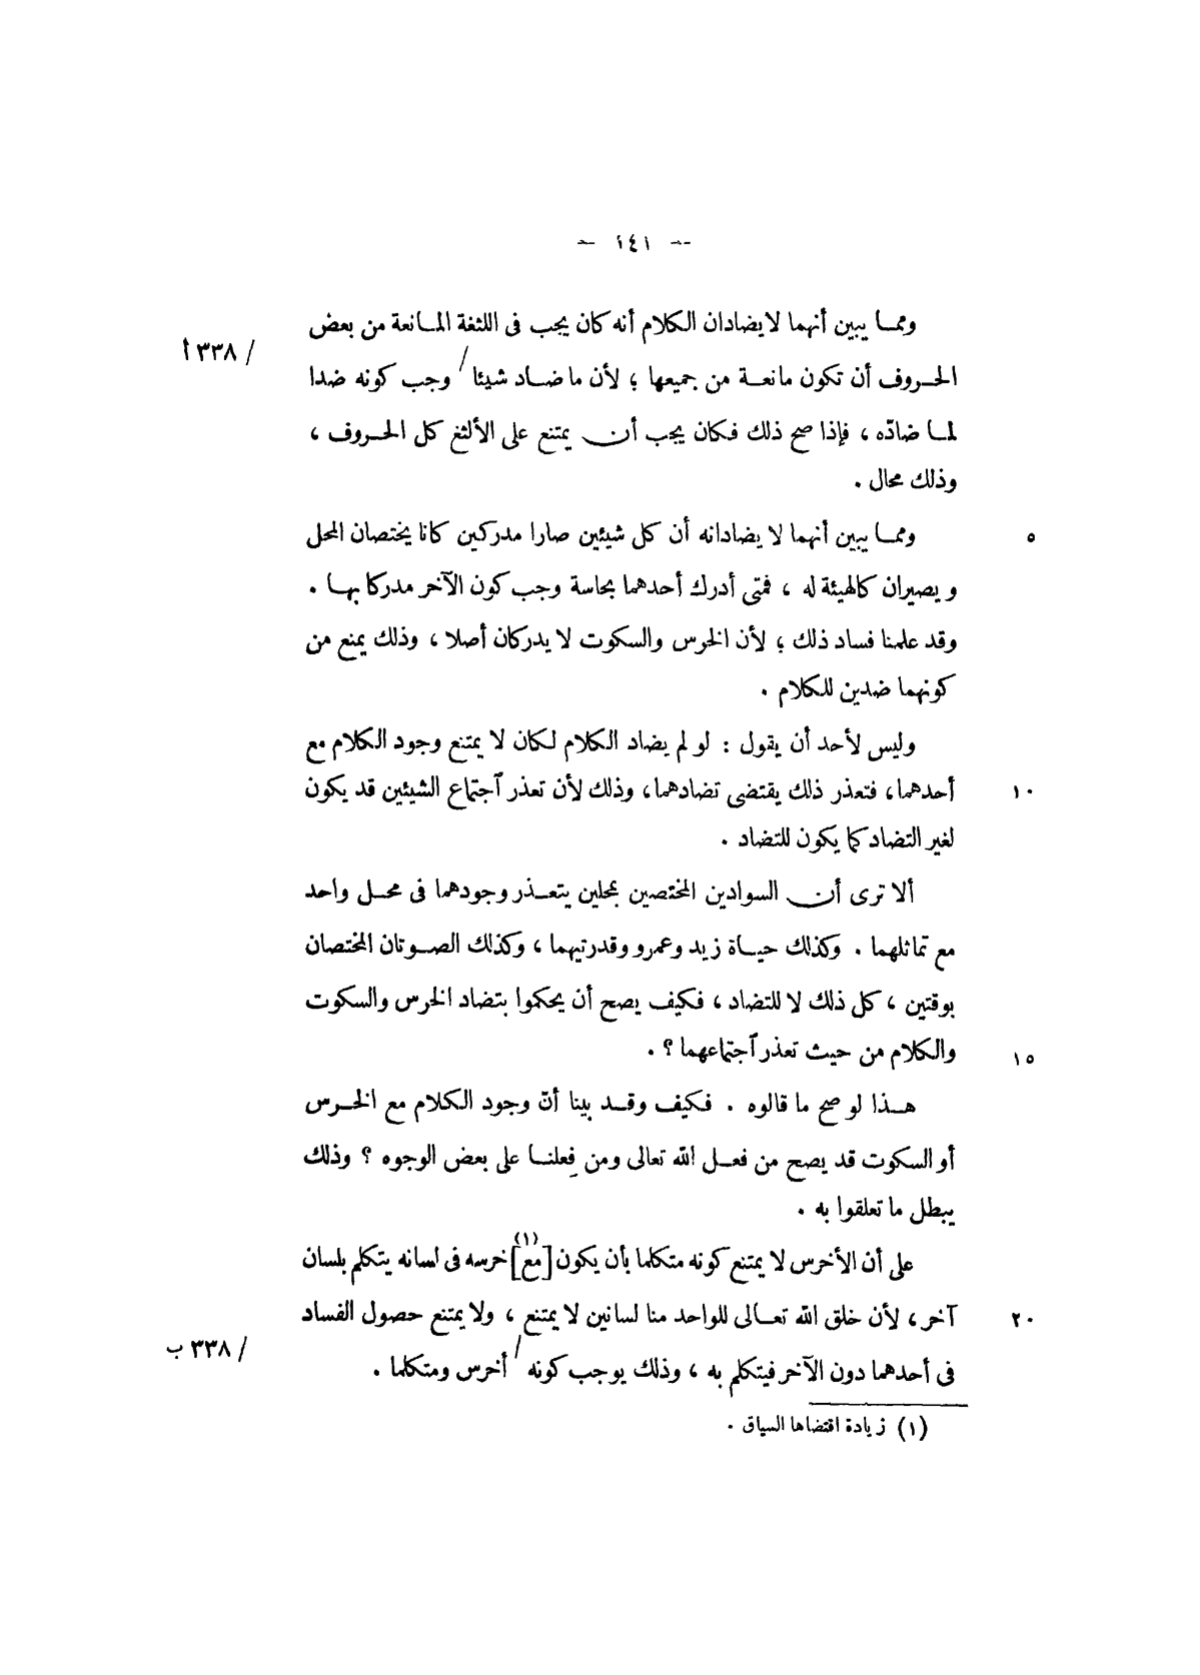 — ١٤١ —
ومما يبين أنهما لا يضادان الكلام أنه كان يجب فى اللثغة المانعة من بعض
/ ٣٣٨ ا
الحروف أن تكون مانعة من جميعها ؛ لأن ما ضاد شيئا / وجب كونه ضدا
لما ضادّه ، فإذا صح ذلك فكان يجب أن يمتنع على الألثغ كل الحروف ،
وذلك محال .
٥ ومما يبين أنهما لا يضادانه أن كل شيئين صارا مدركين كانا يختصان المحل
و يصيران كالهيئة له ، فمتى أدرك أحدهما بحاسة وجب كون الآخر مدركا بها .
وقد علمنا فساد ذلك ؛ لأن الخرس والسكوت لا يدركان أصلا ، وذلك يمنع من
كونهما ضدين للكلام .
وليس لأحد أن يقول : لو لم يضاد الكلام لكان لا يمتنع وجود الكلام مع
١٠ أحدهما، فتعذر ذلك يقتضى تضادهما، وذلك لأن تعذر ٱجتماع الشيئين قد يكون
لغير التضاد كما يكون للتضاد .
ألا ترى أن السوادين المختصين بمحلين يتعذر وجودهما فى محل واحد
مع تماثلهما . وكذلك حياة زيد وعمرو وقدرتيهما ، وكذلك الصوتان المختصان
بوقتين ، كل ذلك لا للتضاد ، فكيف يصح أن يحكموا بتضاد الخرس والسكوت
١٥ والكلام من حيث تعذر ٱجتماعهما ؟ .
هذا لو صح ما قالوه . فكيف وقد بينا أنّ وجود الكلام مع الخرس
أو السكوت قد يصح من فعل الله تعالى ومن فِعلنا على بعض الوجوه ؟ وذلك
يبطل ما تعلقوا به .
على أن الأخرس لا يمتنع كونه متكلما بأن يكون [مع](١) خرسه فى لسانه يتكلم بلسان
٢٠ آخر ، لأن خلق الله تعالى للواحد منا لسانين لا يمتنع ، ولا يمتنع حصول الفساد
/ ٣٣٨ ب
فى أحدهما دون الآخر فيتكلم به ، وذلك يوجب كونه / أخرس ومتكلما .
(١) زيادة اقتضاها السياق .